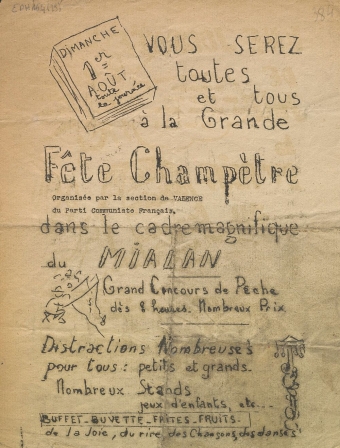 DIMANCHE
1er
AOÛT
toute
la journée
VOUS SEREZ
toutes
et tous
à la Grande
Fête Champêtre
Organisée par la section de VALENCE
du Parti Communiste Français,
dans le cadre magnifique
du MIALAN
Grand Concours de Pêche
dès 8 heures. Nombreux Prix
Distractions Nombreuses
pour tous : petits et grands.
Nombreux Stands
jeux d'enfants, etc...
BUFFET_BUVETTE_FRITES_FRUITS.
de la Joie, du rire, des Chansons, des danses